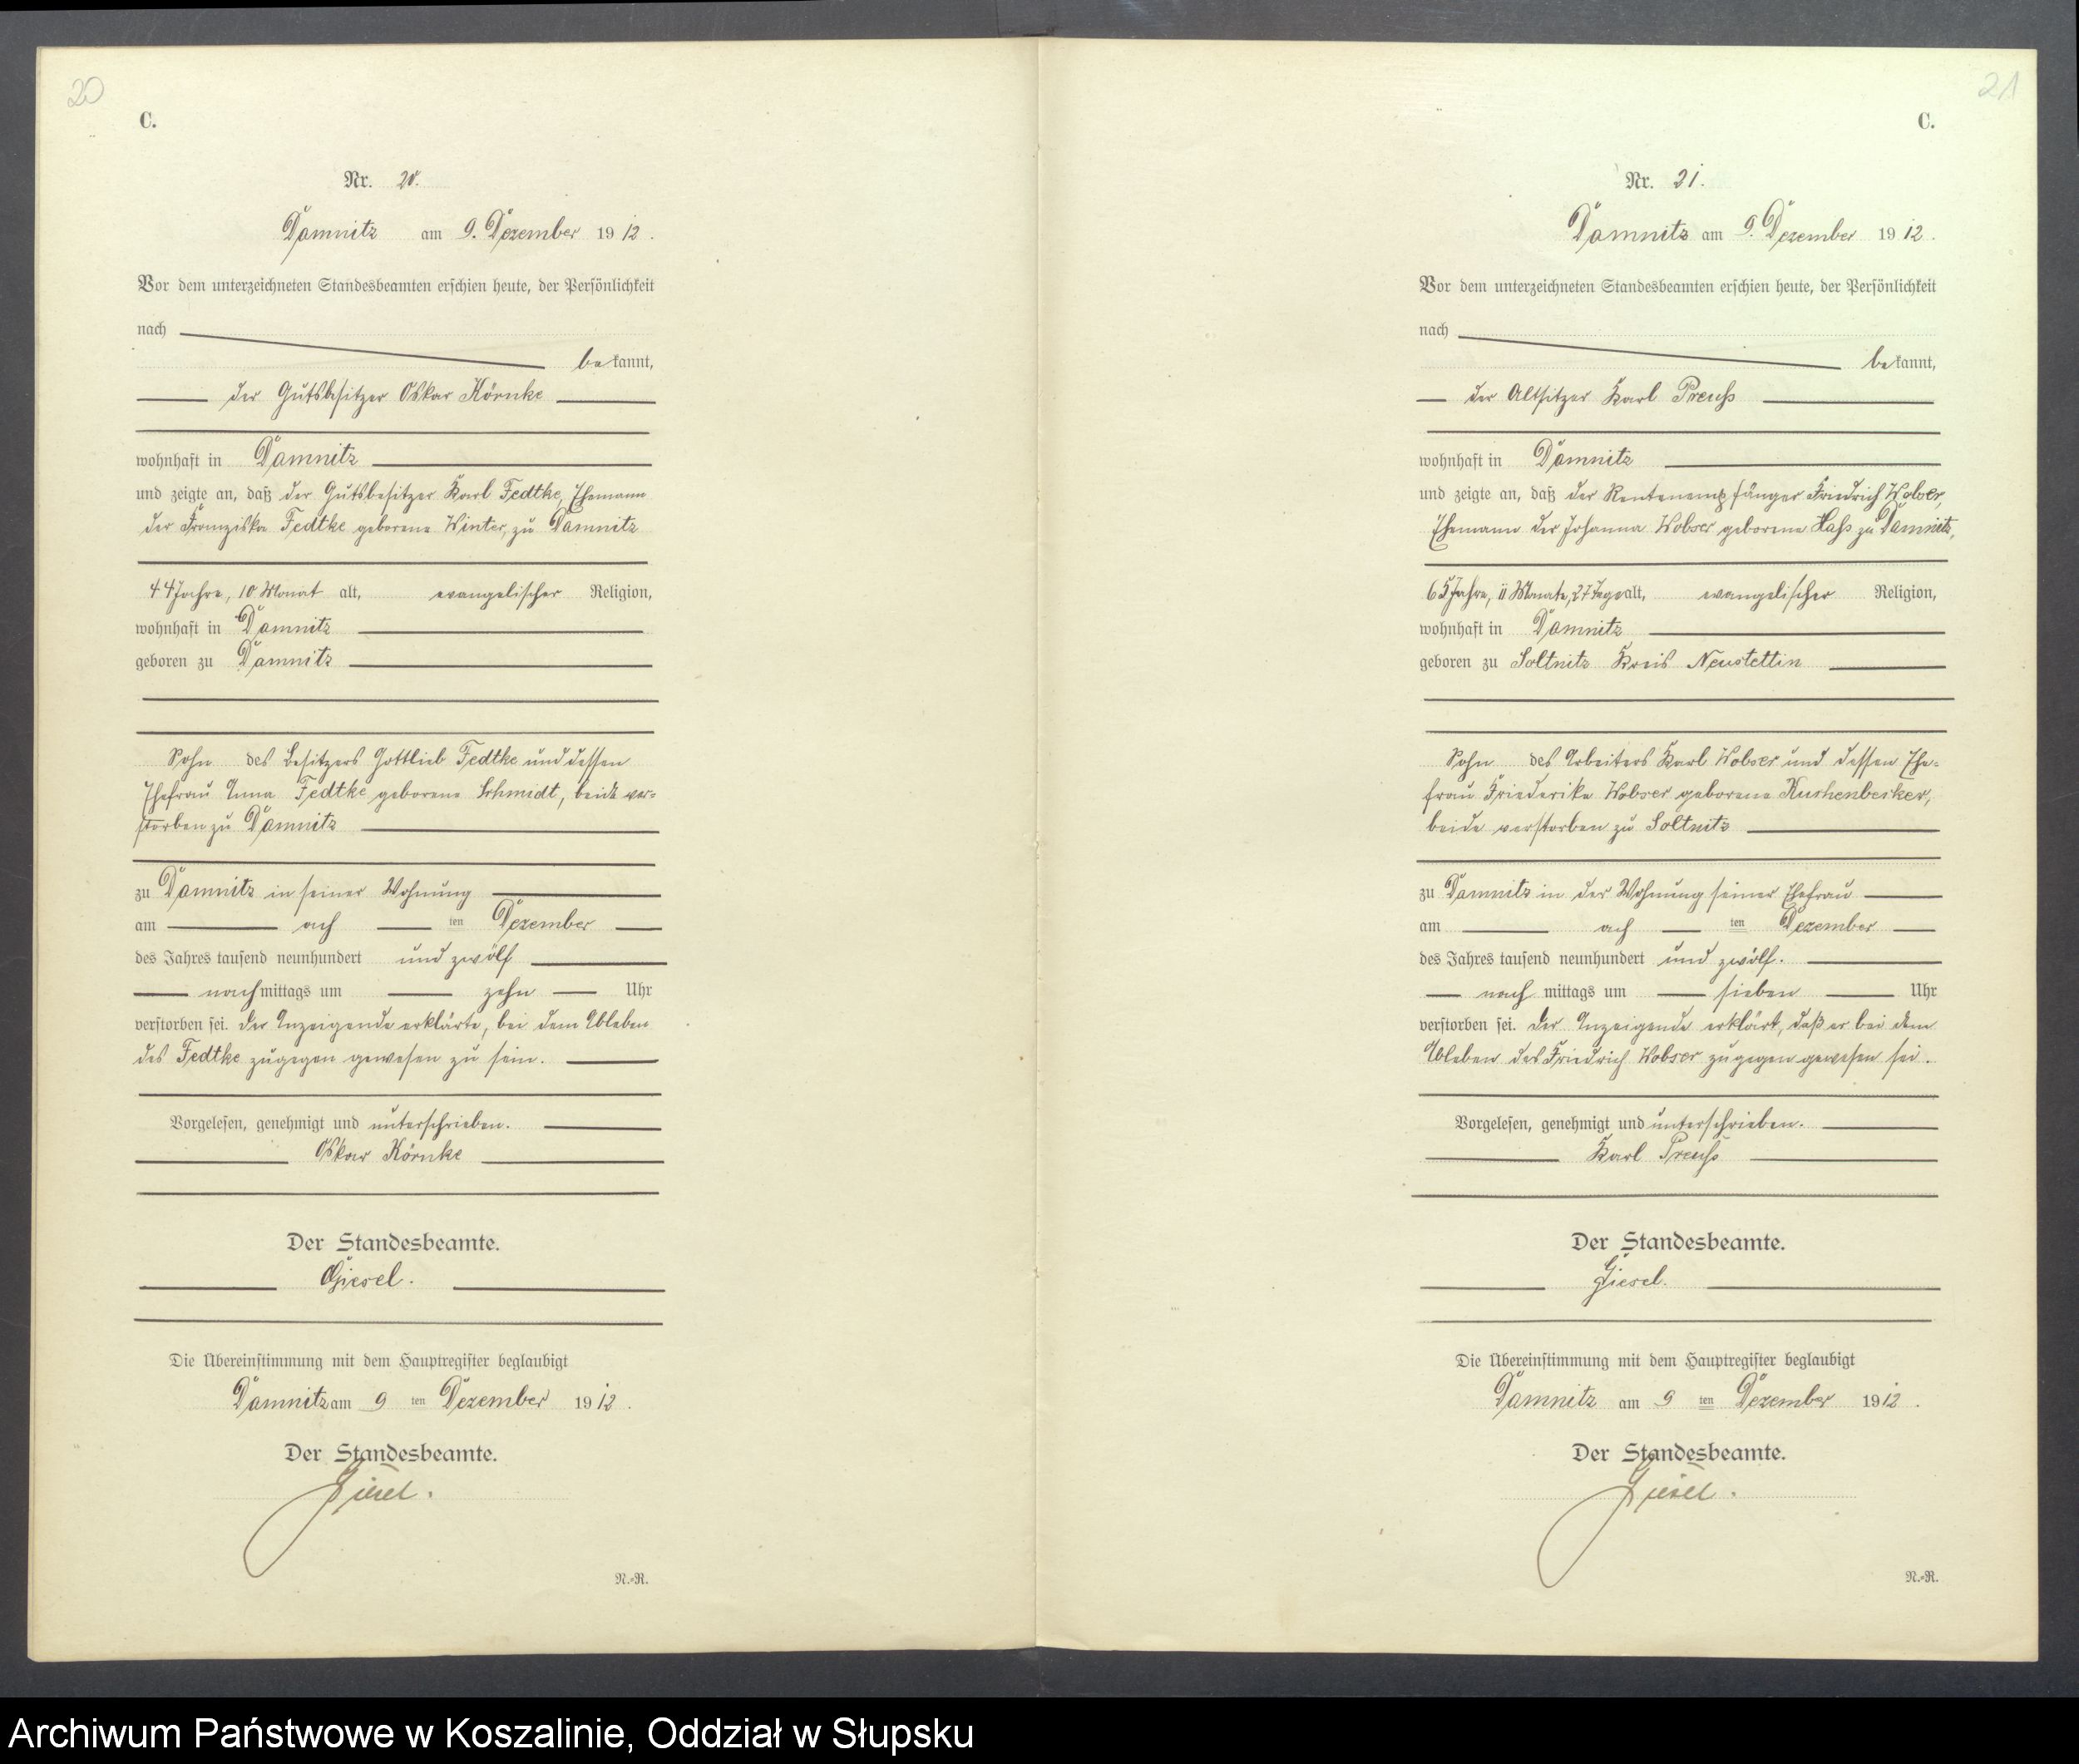 20
C.
Nr. 20.
Damnitz am 9. Dezember 1912.
Vor dem unterzeichneten Standesbeamten erschien heute, der Persönlichkeit
nach
bekannt,
der Gutsbesitzer Oskar Körnke
wohnhaft in Damnitz
und zeigte an, daß der Gutsbesitzer Karl Fedtke, Ehemann
der Franziska Fedtke geborene Winter, zu Damnitz
44 Jahre, 10 Monat alt, evangelischer Religion,
wohnhaft in Damnitz
geboren zu Damnitz
Sohn des Besitzers Gottlieb Fedtke und dessen
Ehefrau Anna Fedtke geborene Schmidt, beide ver=
storben zu Damnitz
zu Damnitz in seiner Wohnung
am ach ten Dezember
des Jahres tausend neunhundert und zwölf
nachmittags um zehn Uhr
verstorben sei. Der Anzeigende erklärte, bei dem Ableben
des Fedtke zugegen gewesen zu sein.
Vorgelesen, genehmigt und unterschrieben.
Oskar Körnke
Der Standesbeamte.
Giesel.
Die Übereinstimmung mit dem Hauptregister beglaubigt
Damnitz am 9 ten Dezember 1912.
Der Standesbeamte.
Giesel.
N.=R.
21
C.
Nr. 21.
Damnitz am 9. Dezember 1912.
Vor dem unterzeichneten Standesbeamten erschien heute, der Persönlichkeit
nach
bekannt,
der Altsitzer Karl Preuß
wohnhaft in Damnitz
und zeigte an, daß der Rentenempfänger Friedrich Wobser,
Ehemann der Johanna Wobser geborene Haß zu Damnitz,
65 Jahre, 11 Monate, 27 Tage alt, evangelischer Religion,
wohnhaft in Damnitz
geboren zu Soltnitz Kreis Neustettin
Sohn des Arbeiters Karl Wobser und dessen Ehe=
frau Friederike Wobser geborene Kuchenbecker,
beide verstorben zu Soltnitz
zu Damnitz in der Wohnung seiner Ehefrau
am ach ten Dezember
des Jahres tausend neunhundert und zwölf.
nach mittags um sieben Uhr
verstorben sei. Der Anzeigende erklärt, daß er bei dem
Ableben des Friedrich Wobser zugegen gewesen sei.
Vorgelesen, genehmigt und unterschrieben.
Karl Preuß
Der Standesbeamte.
Giesel.
Die Übereinstimmung mit dem Hauptregister beglaubigt
Damnitz am 9 ten Dezember 1912.
Der Standesbeamte.
Giesel.
N.=R.
Archiwum Państwowe w Koszalinie, Oddział w Słupsku